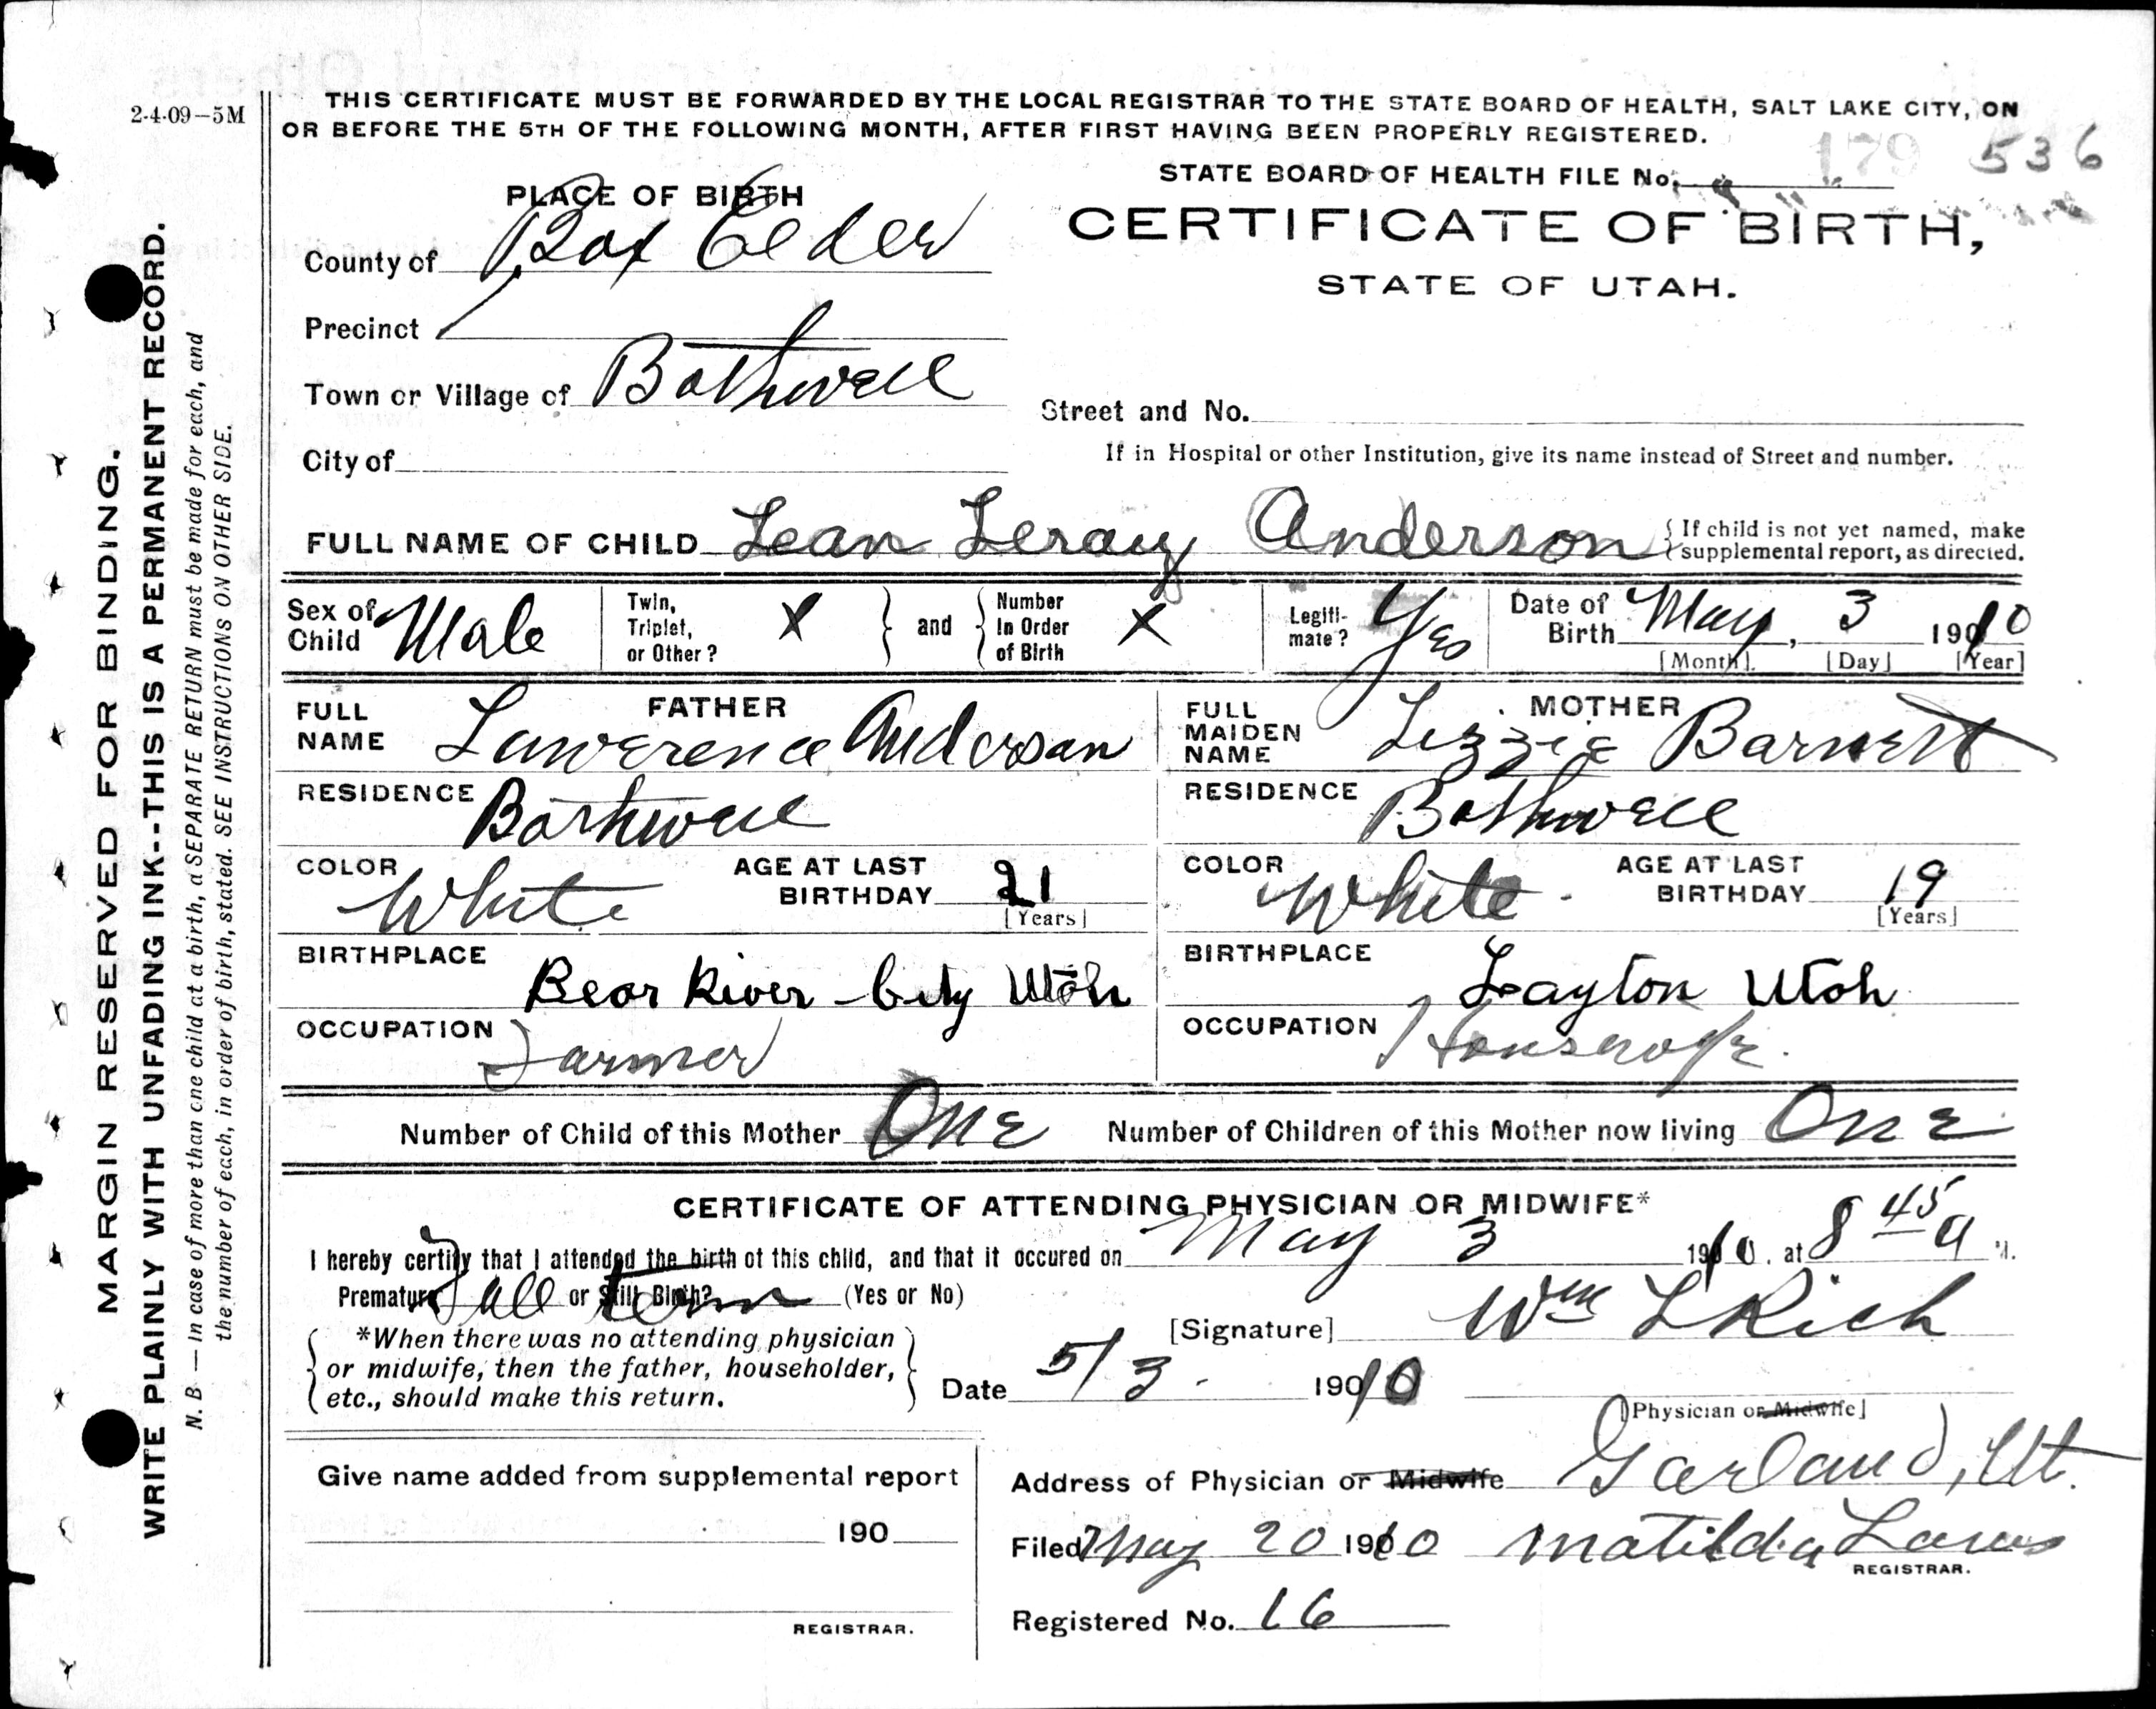 2-4-09—5M
THIS CERTIFICATE MUST BE FORWARDED BY THE LOCAL REGISTRAR TO THE STATE BOARD OF HEALTH, SALT LAKE CITY, ON
OR BEFORE THE 5TH OF THE FOLLOWING MONTH, AFTER FIRST HAVING BEEN PROPERLY REGISTERED.
179 536
STATE BOARD OF HEALTH FILE No.
PLACE OF BIRTH
CERTIFICATE OF BIRTH,
STATE OF UTAH.
County of Box Elder
Precinct
Town or Village of Bothwell
Street and No.
City of
If in Hospital or other Institution, give its name instead of Street and number.
FULL NAME OF CHILD Lean Leray Anderson { If child is not yet named, make
supplemental report, as directed.
Sex of Child Male Twin, Triplet, or Other? X and Number In Order of Birth X Legiti-mate? Yes Date of Birth May, 3 1910
[Month]. [Day] [Year]
FATHER
FULL NAME Lawerence Anderson
RESIDENCE Bothwell
COLOR White AGE AT LAST BIRTHDAY 21
[Years]
BIRTHPLACE Bear River City Utah
OCCUPATION Farmer
MOTHER
FULL MAIDEN NAME Lizzie Barnett
RESIDENCE Bothwell
COLOR White AGE AT LAST BIRTHDAY 19
[Years]
BIRTHPLACE Layton Utah
OCCUPATION Housewife.
Number of Child of this Mother One Number of Children of this Mother now living One
CERTIFICATE OF ATTENDING PHYSICIAN OR MIDWIFE*
I hereby certify that I attended the birth of this child, and that it occured on May 3 1910. at 8 45 a M.
Premature Full or Still Birth? term (Yes or No)
*When there was no attending physician
or midwife, then the father, householder,
etc., should make this return.
[Signature] Wm L Rich
Date 5/3. 1910
[Physician or Midwife]
Give name added from supplemental report
190
REGISTRAR.
Address of Physician or Midwife Garland, Ut.
Filed May 20 1910 Matilda
REGISTRAR.
Registered No. 16
MARGIN RESERVED FOR BINDING.
WRITE PLAINLY WITH UNFADING INK--THIS IS A PERMANENT RECORD.
N. B — In case of more than one child at a birth, a SEPARATE RETURN must be made for each, and
the number of each, in order of birth, stated. SEE INSTRUCTIONS ON OTHER SIDE.